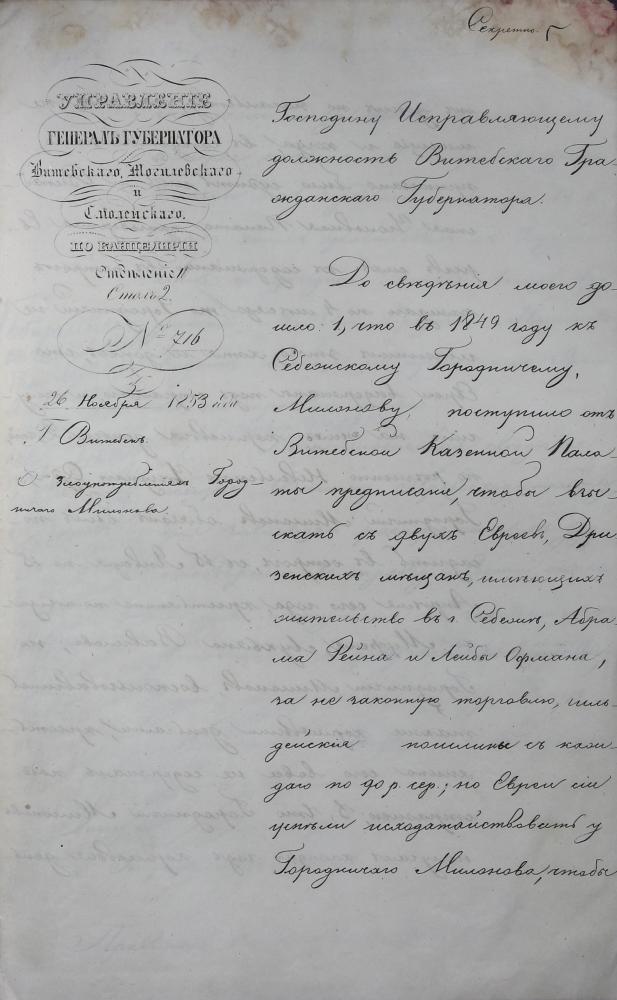 Секретно.
УПРАВЛЕНІЕ
ГЕНЕРАЛЪ ГУБЕРНАТОРА
Витебскаго, Могилевскаго
и
Смоленскаго.
ПО КАНЦЕЛЯРІИ
Отдѣленіе II
Столъ 2.
№ 716
26 Ноября 1853 года
Г. Витебскъ.
О злоупотребленіяхъ Город-
ничаго Милонова
Господину Исправляющему
должность Витебскаго Гра-
жданскаго Губернатора.
До свѣдѣнія моего до-
шло: 1, что въ 1849 году къ
Себежскому Городничему,
Милонову, поступило отъ
Витебской Казенной Пала-
ты предписаніе, чтобы взы-
скать съ двухъ Евреевъ, Дри-
зенскихъ мѣщанъ, имѣющихъ
жительство въ г. Себежѣ, Абра-
ма Рейна и Лейбы Офмана,
за не законную торговлю, гиль-
дейскія пошлины съ каж-
даго по 40 р. сер.; но Евреи сіи
успѣли исходатайствовать у
Городничаго Милонова, чтобы